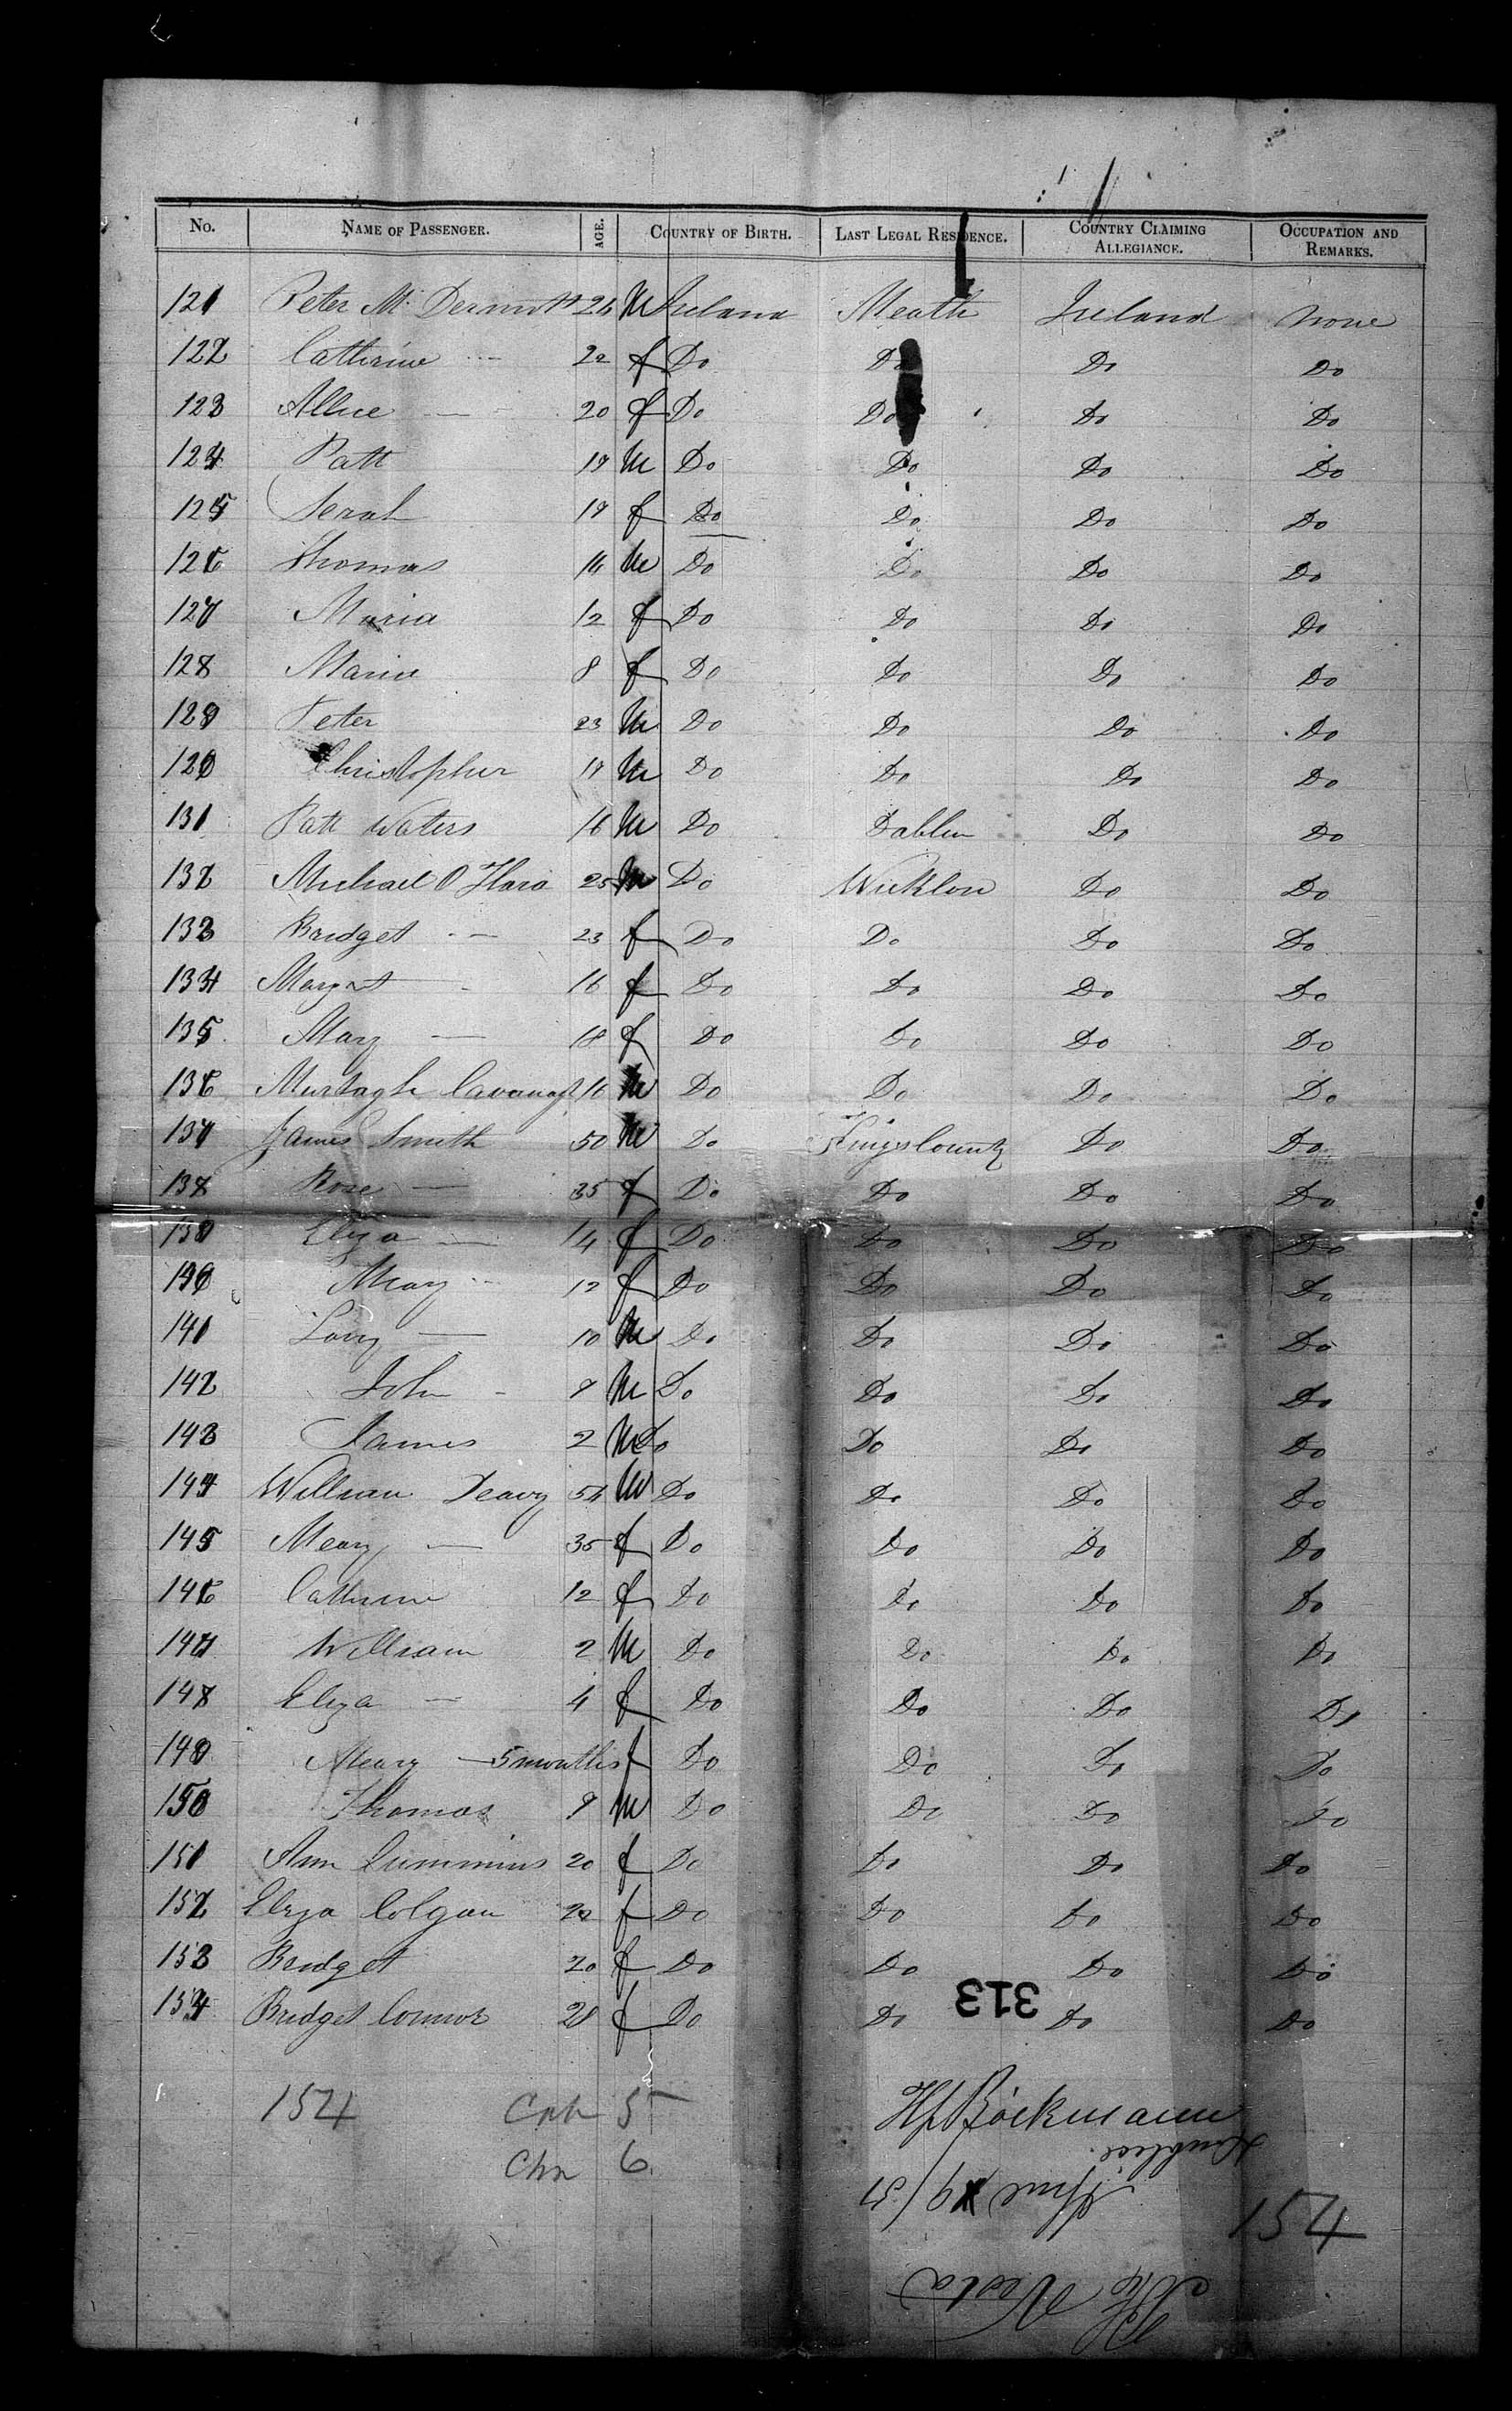 No. NAME OF PASSENGER. AGE. COUNTRY OF BIRTH. LAST LEGAL RESIDENCE. COUNTRY CLAIMING ALLEGIANCE. OCCUPATION AND REMARKS.
121 Peter Mc Dermott 26 M Ireland Meath Ireland none
122 Catherine — 22 f Do Do Do Do
123 Allice — 20 f Do Do Do Do
124 Patt 19 M Do Do Do Do
125 Serah 19 f Do Do Do Do
126 Thomas 16 M Do Do Do Do
127 Maria 12 f Do Do Do Do
128 Maria 8 f Do Do Do Do
129 Peter 23 M Do Do Do Do
120 Christopher 19 M Do Do Do Do
131 Patt Waters 16 M Do Dablen Do Do
132 Michael O'Hara 25 M Do Wicklow Do Do
133 Bridget — 23 f Do Do Do Do
134 Margret — 16 f Do Do Do Do
135 Mary — 18 f Do Do Do Do
136 Murtagh Cavanagh 16 M Do Do Do Do
137 James Smith 50 M Do Kings County Do Do
138 Rose — 35 f Do Do Do Do
139 Eliza — 14 f Do Do Do Do
140 Meary 12 f Do Do Do Do
141 — 10 M Do Do Do Do
142 John - 9 M Do Do Do Do
143 James 2 M Do Do Do Do
144 William Deavy 54 M Do Do Do Do
145 Meary — 35 f Do Do Do Do
146 Catherine 12 f Do Do Do Do
147 William 2 M Do Do Do Do
148 Eliza — 4 f Do Do Do Do
149 Meary — 5 months f Do Do Do Do
150 Thomas 9 M Do Do Do Do
151 Ann Cummins 20 f Do Do Do Do
152 Eliza Colgan 20 f Do Do Do Do
153 Bridget 20 f Do Do Do Do
154 Bridget Connor 28 f Do Do Do Do
313
154 5
Chn 6
Böckmann
June 9/51
154
Vesta